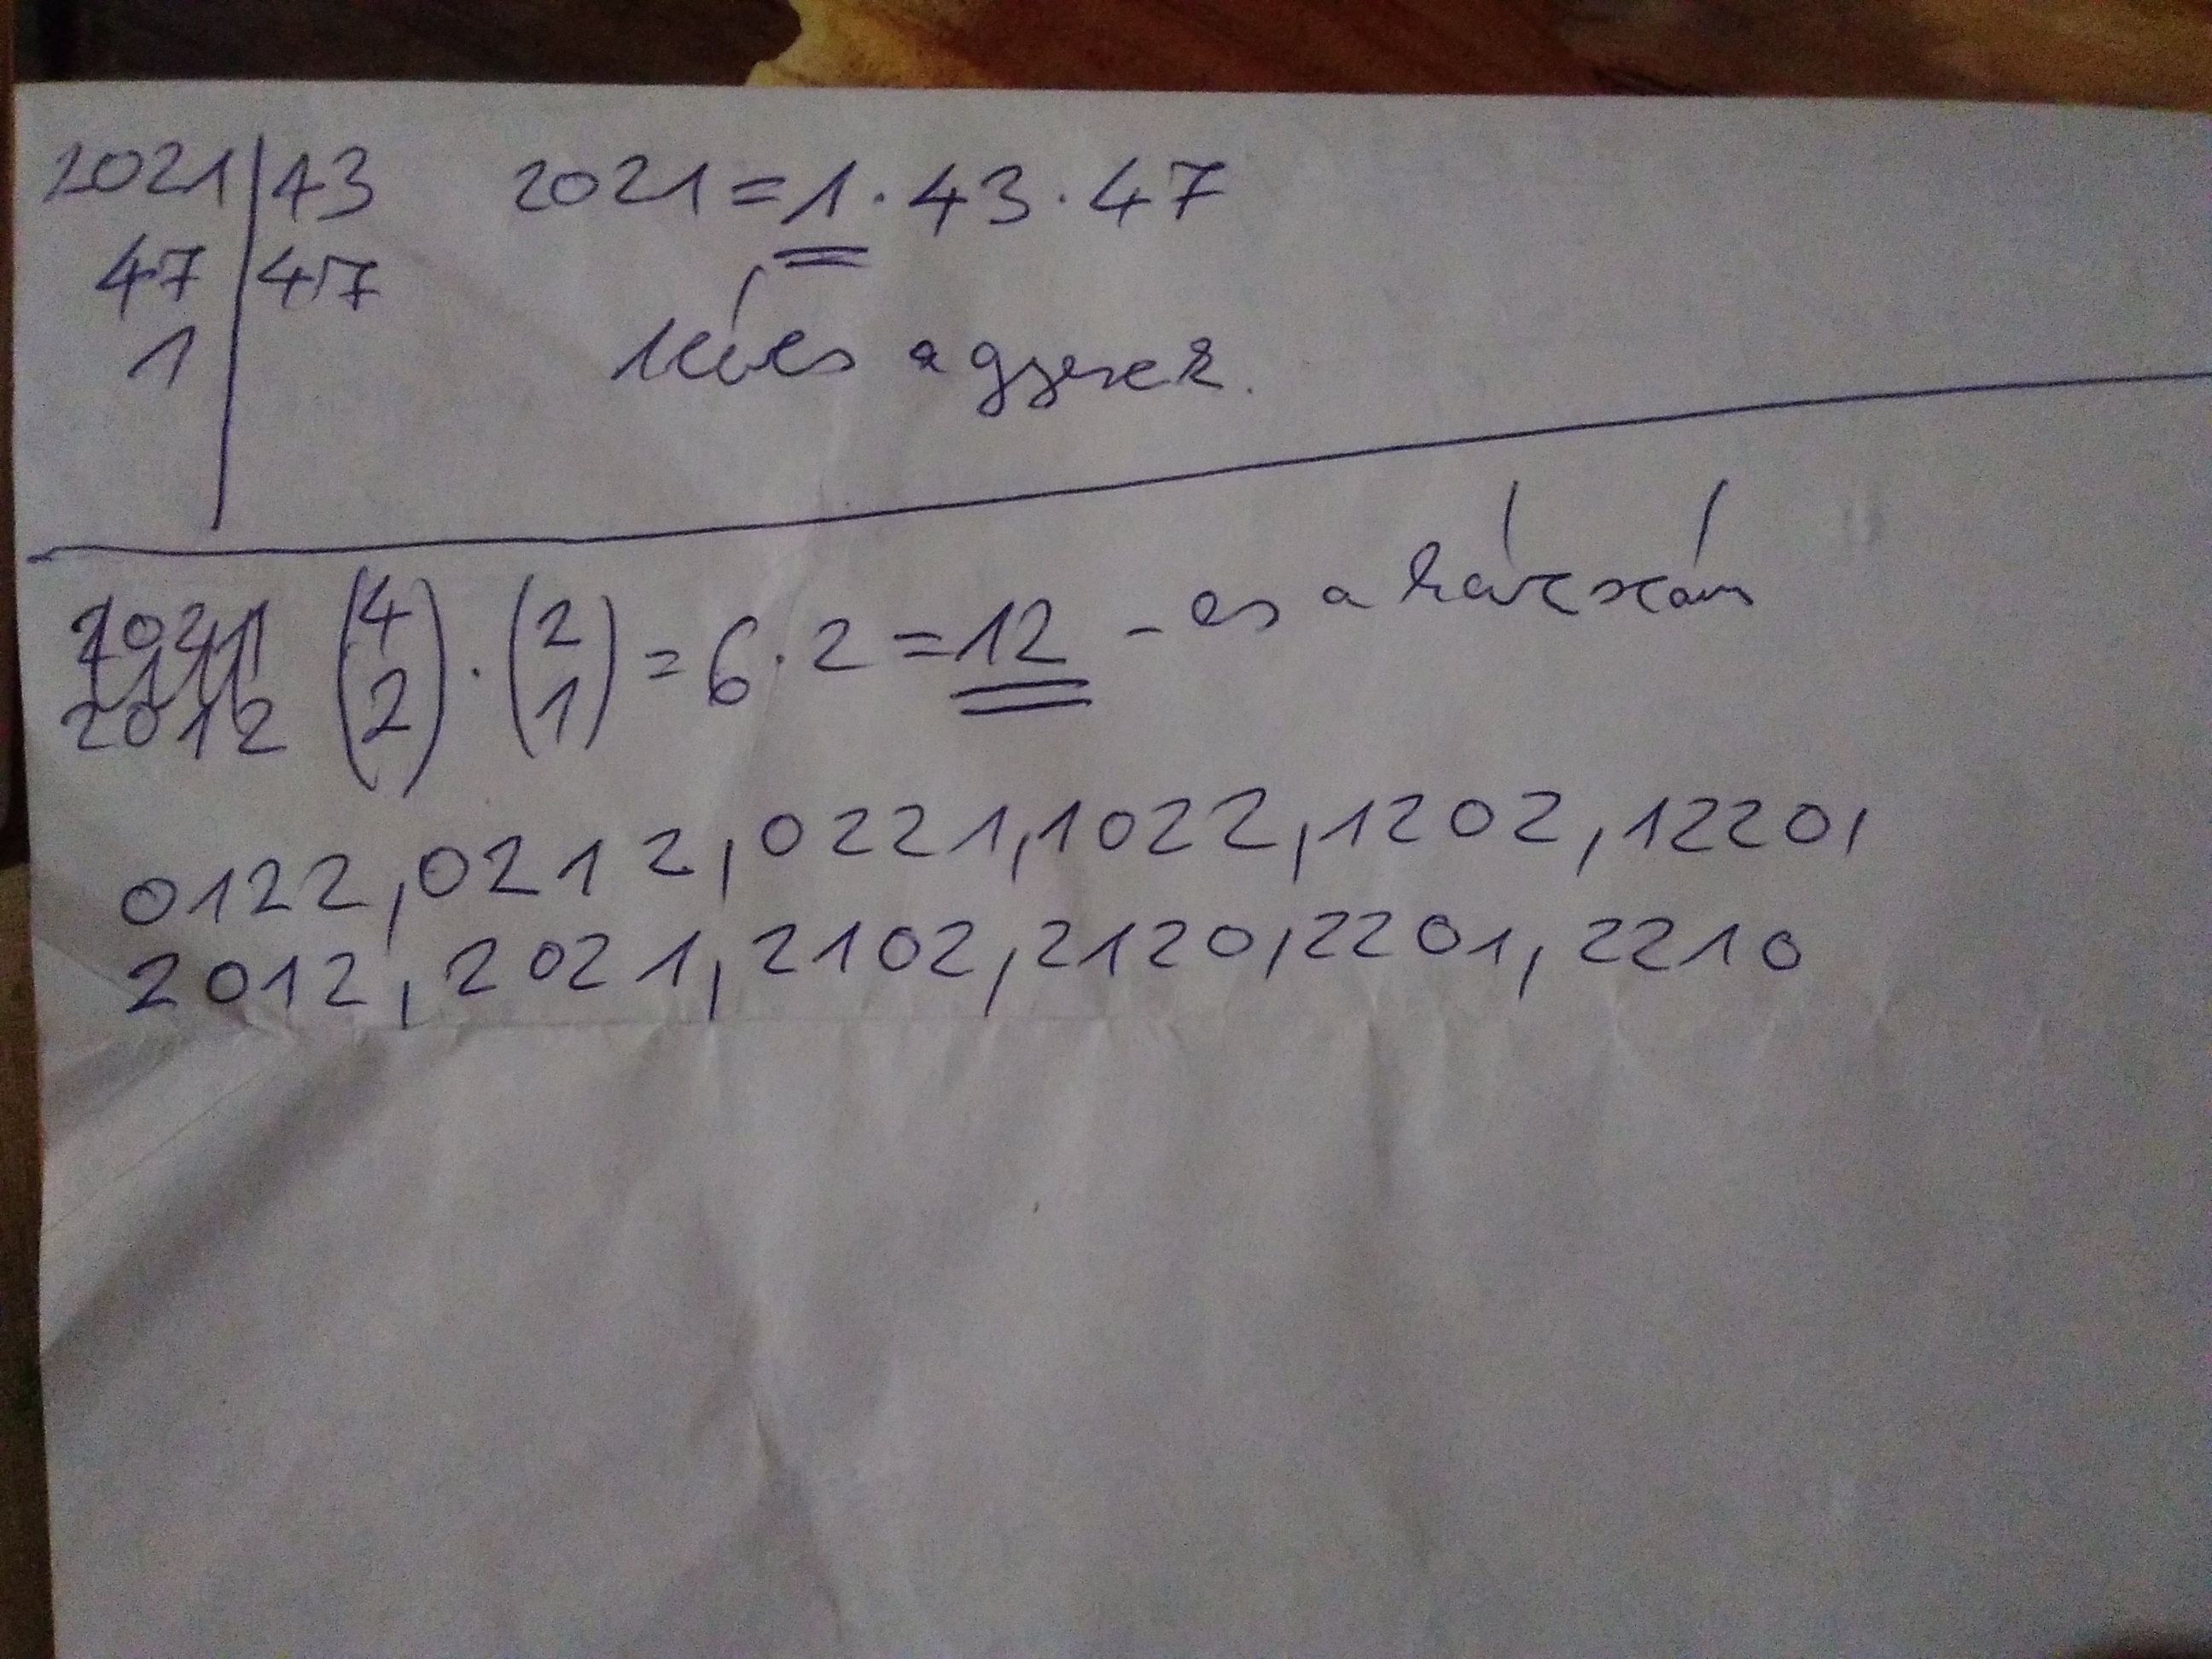 2021 | 43 2021 = 1 · 43 · 47
47 | 47
1 | 1 éves a gyerek.
(4 2) · (2 1) = 6 · 2 = 12 - es a házszám
2012
0122, 0212, 0221, 1022, 1202, 1220,
2012, 2021, 2102, 2120, 2201, 2210